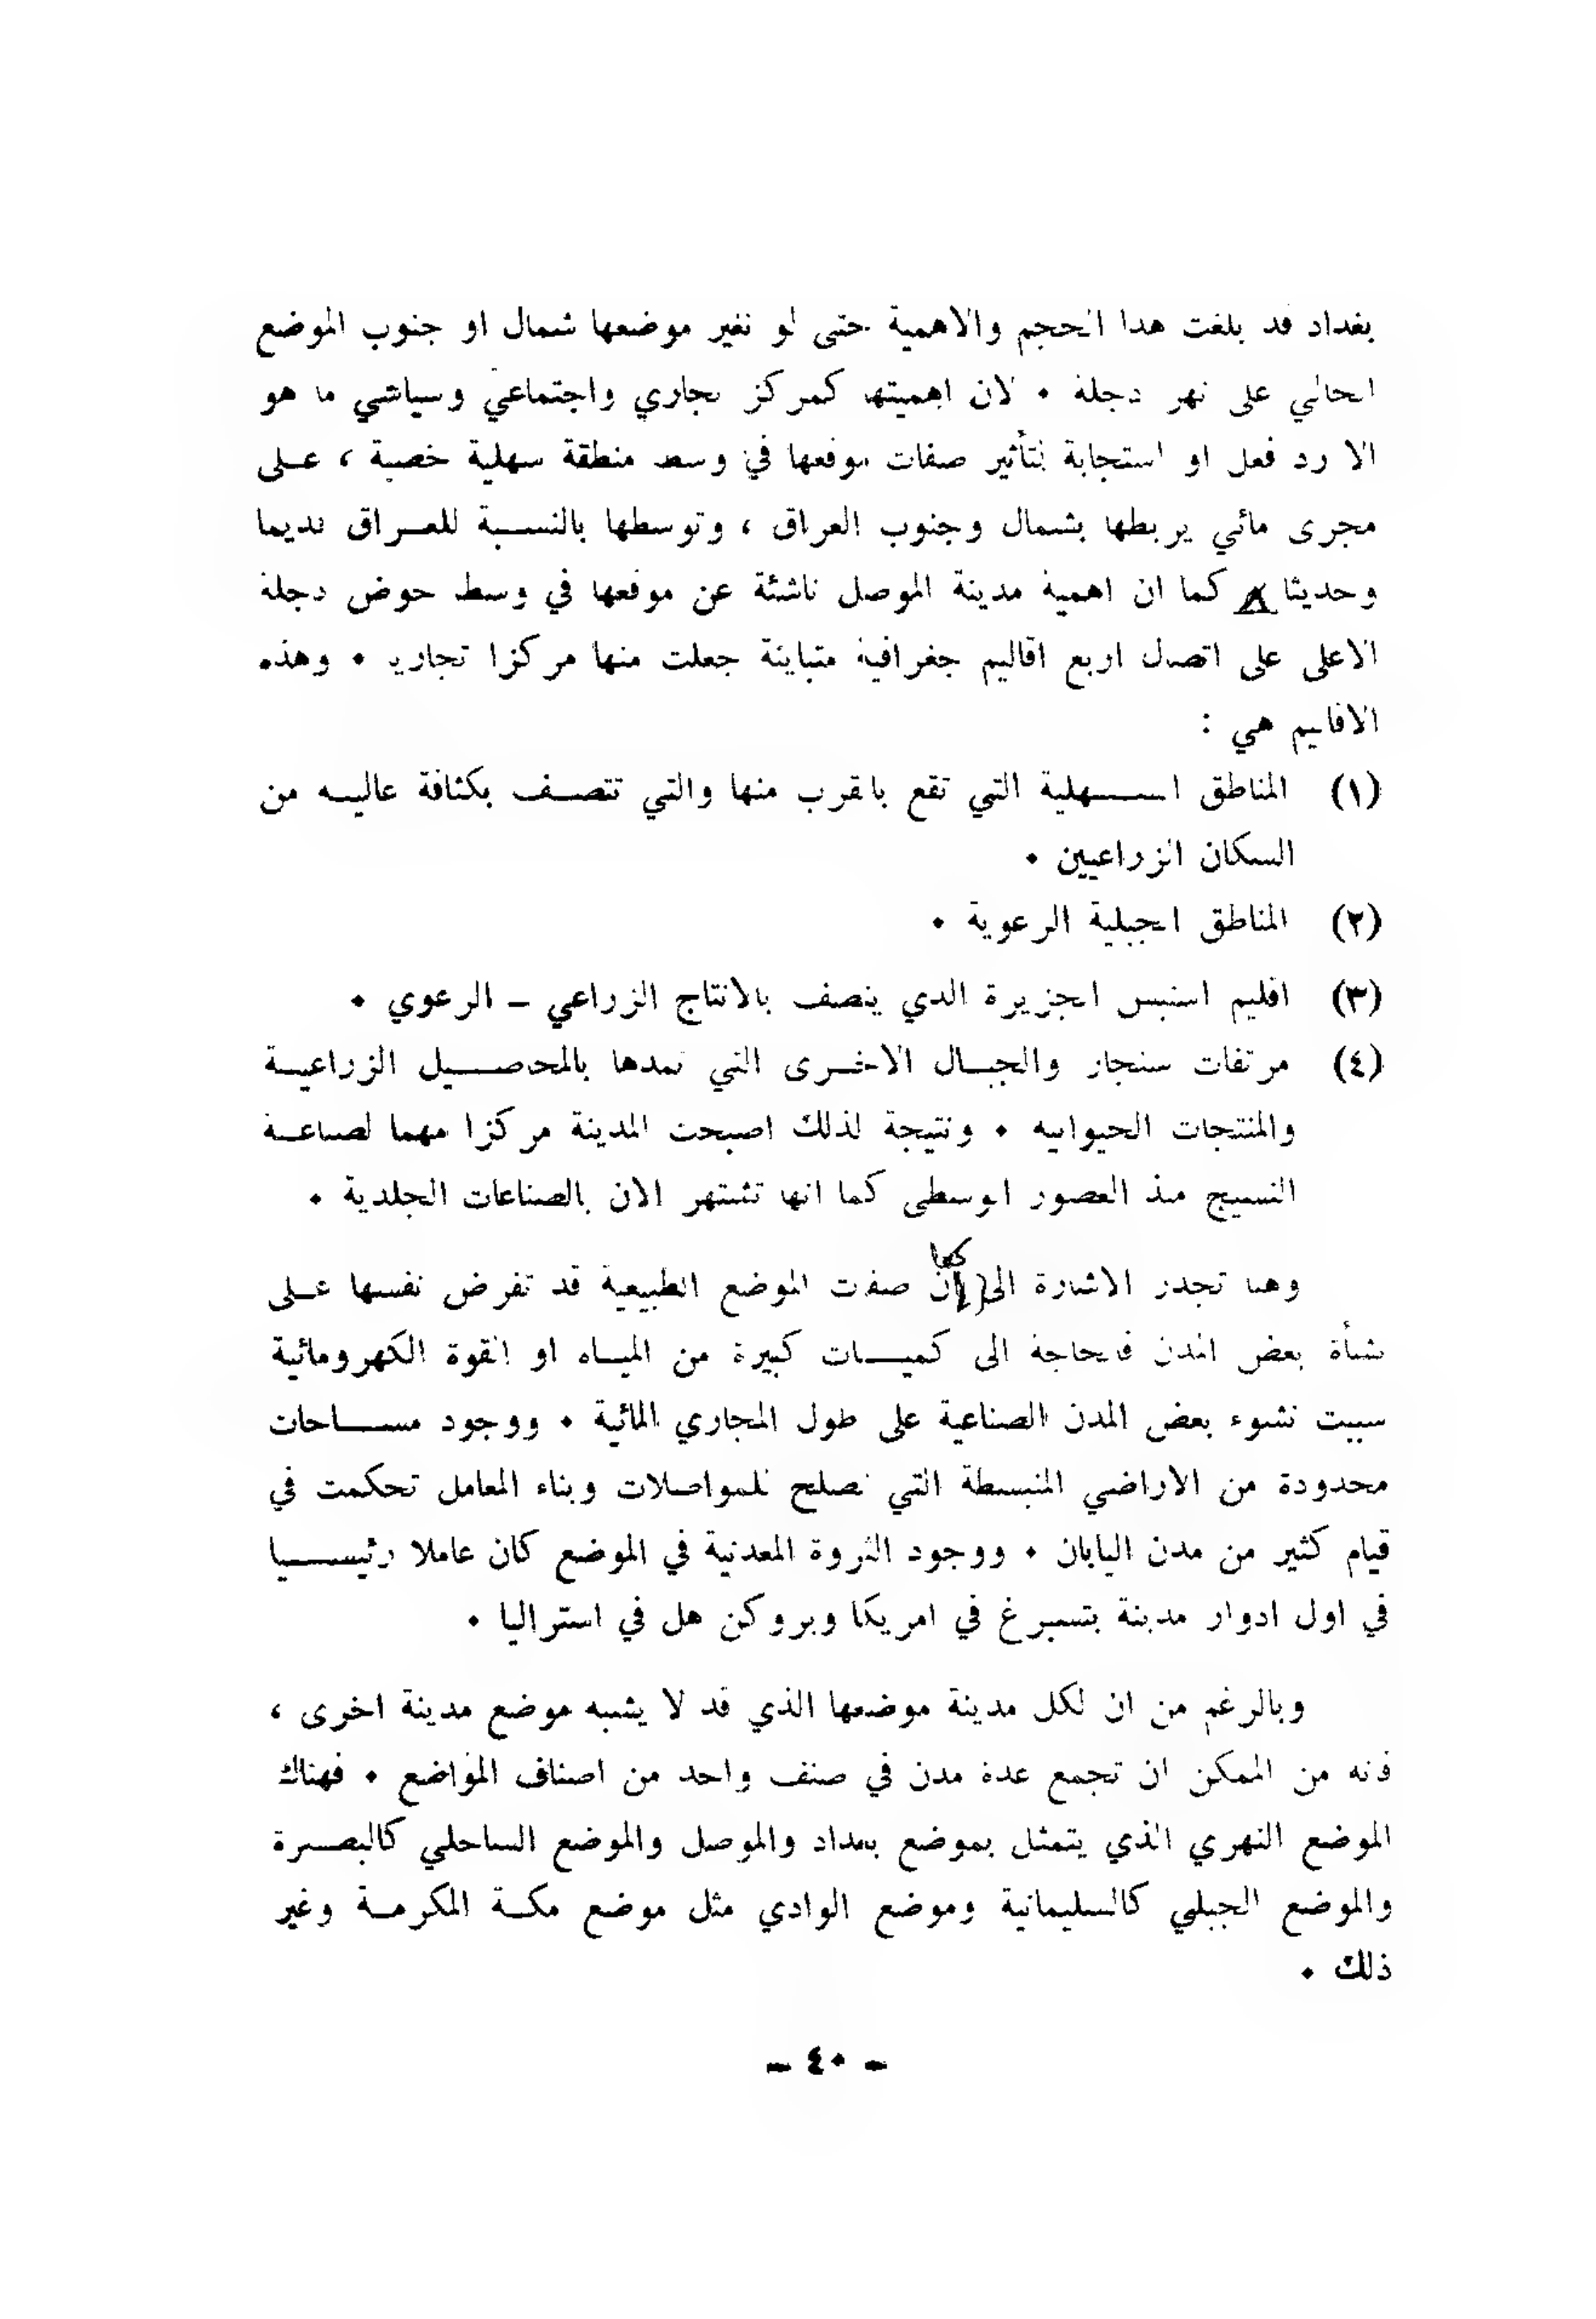 بغداد قد بلغت هذا الحجم والاهمية حتى لو تغير موضعها شمال او جنوب الموضع
الحالي على نهر دجلة ٠ لان اهميتها كمركز تجاري واجتماعي وسياسي ما هو
الا رد فعل او استجابة لتأثير صفات موقعها في وسط منطقة سهلية خصبة ، على
مجرى مائي يربطها بشمال وجنوب العراق ، وتوسطها بالنسبة للعراق قديما
وحديثا كما ان اهمية مدينة الموصل ناشئة عن موقعها في وسط حوض دجلة
الاعلى على اتصال اربع اقاليم جغرافية متباينة جعلت منها مركزا تجاريا ٠ وهذه
الاقاليم هي :
(١) المناطق السهلية التي تقع بالقرب منها والتي تتصف بكثافة عالية من
السكان الزراعيين ٠
(٢) المناطق الجبلية الرعوية ٠
(٣) اقليم استبس الجزيرة الذي يتصف بالانتاج الزراعي – الرعوي ٠
(٤) مرتفات سنجار والجبال الاخرى التي تمدها بالمحاصيل الزراعية
والمنتجات الحيوانية ٠ ونتيجة لذلك اصبحت المدينة مركزا مهما لصناعة
النسيج منذ العصور الوسطى كما انها تشتهر الان بالصناعات الجلدية ٠
وهنا تجدر الاشارة الى ان صفات الموضع الطبيعية قد تفرض نفسها على
نشأة بعض المدن فالحاجة الى كميات كبيرة من المياه او القوة الكهرومائية
سببت نشوء بعض المدن الصناعية على طول المجاري المائية ٠ ووجود مساحات
محدودة من الاراضي المنبسطة التي تصلح للمواصلات وبناء المعامل تحكمت في
قيام كثير من مدن اليابان ٠ ووجود الثروة المعدنية في الموضع كان عاملا رئيسيا
في اول ادوار مدينة بتسبرغ في امريكا وبروكن هل في استراليا ٠
وبالرغم من ان لكل مدينة موضعها الذي قد لا يشبه موضع مدينة اخرى ،
فانه من الممكن ان تجمع عدة مدن في صنف واحد من اصناف المواضع ٠ فهناك
الموضع النهري الذي يتمثل بموضع بغداد والموصل والموضع الساحلي كالبصرة
والموضع الجبلي كالسليمانية وموضع الوادي مثل موضع مكة المكرمة وغير
ذلك ٠
– ٤٠ –